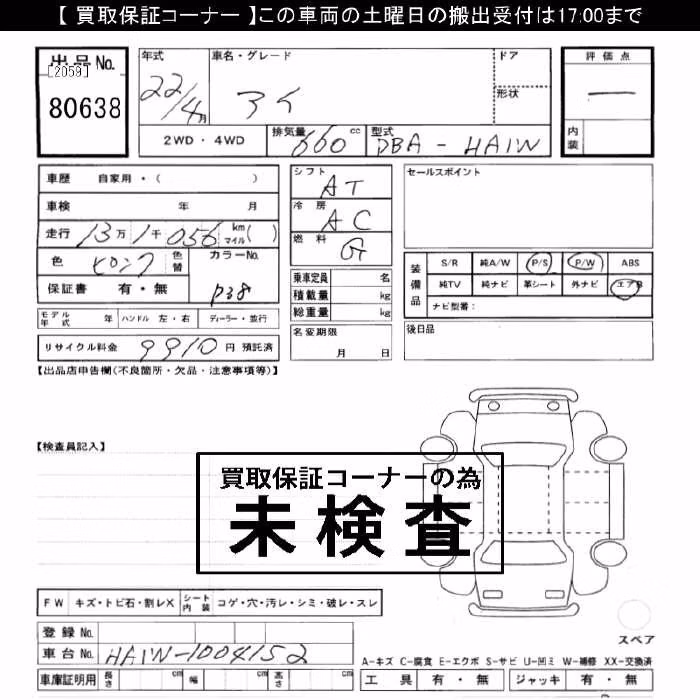 【 買取保証コーナー 】この車両の土曜日の搬出受付は17:00まで
出品No.
[2059]
80638
年式
22/4月
車名・グレード
アイ
ドア
形状
評価点
—
内装
2WD・4WD
排気量 660 cc
型式 DBA-HA1W
車歴 自家用・( )
車検 年 月
走行 13万1千056 km マイル( )
色 ピンク 色替
カラーNo. P38
保証書 有・無
モデル年式 年 ハンドル 左・右 ディーラー・並行
リサイクル料金 9910 円 預託済
シフト AT
冷房 AC
燃料 G
乗車定員 名
積載量 kg
総重量 kg
名変期限 月 日
セールスポイント
装備品
S/R 純A/W P/S P/W ABS
純TV 純ナビ 革シート 外ナビ エアB
ナビ型番:
後日品
【出品店申告欄(不良箇所・欠品・注意事項等)】
【検査員記入】
買取保証コーナーの為
未検査
FW キズ・トビ石・割レX シート内装 コゲ・穴・汚レ・シミ・破レ・スレ
登録No.
車台No. HA1W-1004152
車庫証明用 長さ cm 幅 cm 高さ cm
スペア
A-キズ C-腐食 E-エクボ S-サビ U-凹ミ W-補修 XX-交換済
工具 有・無 ジャッキ 有・無